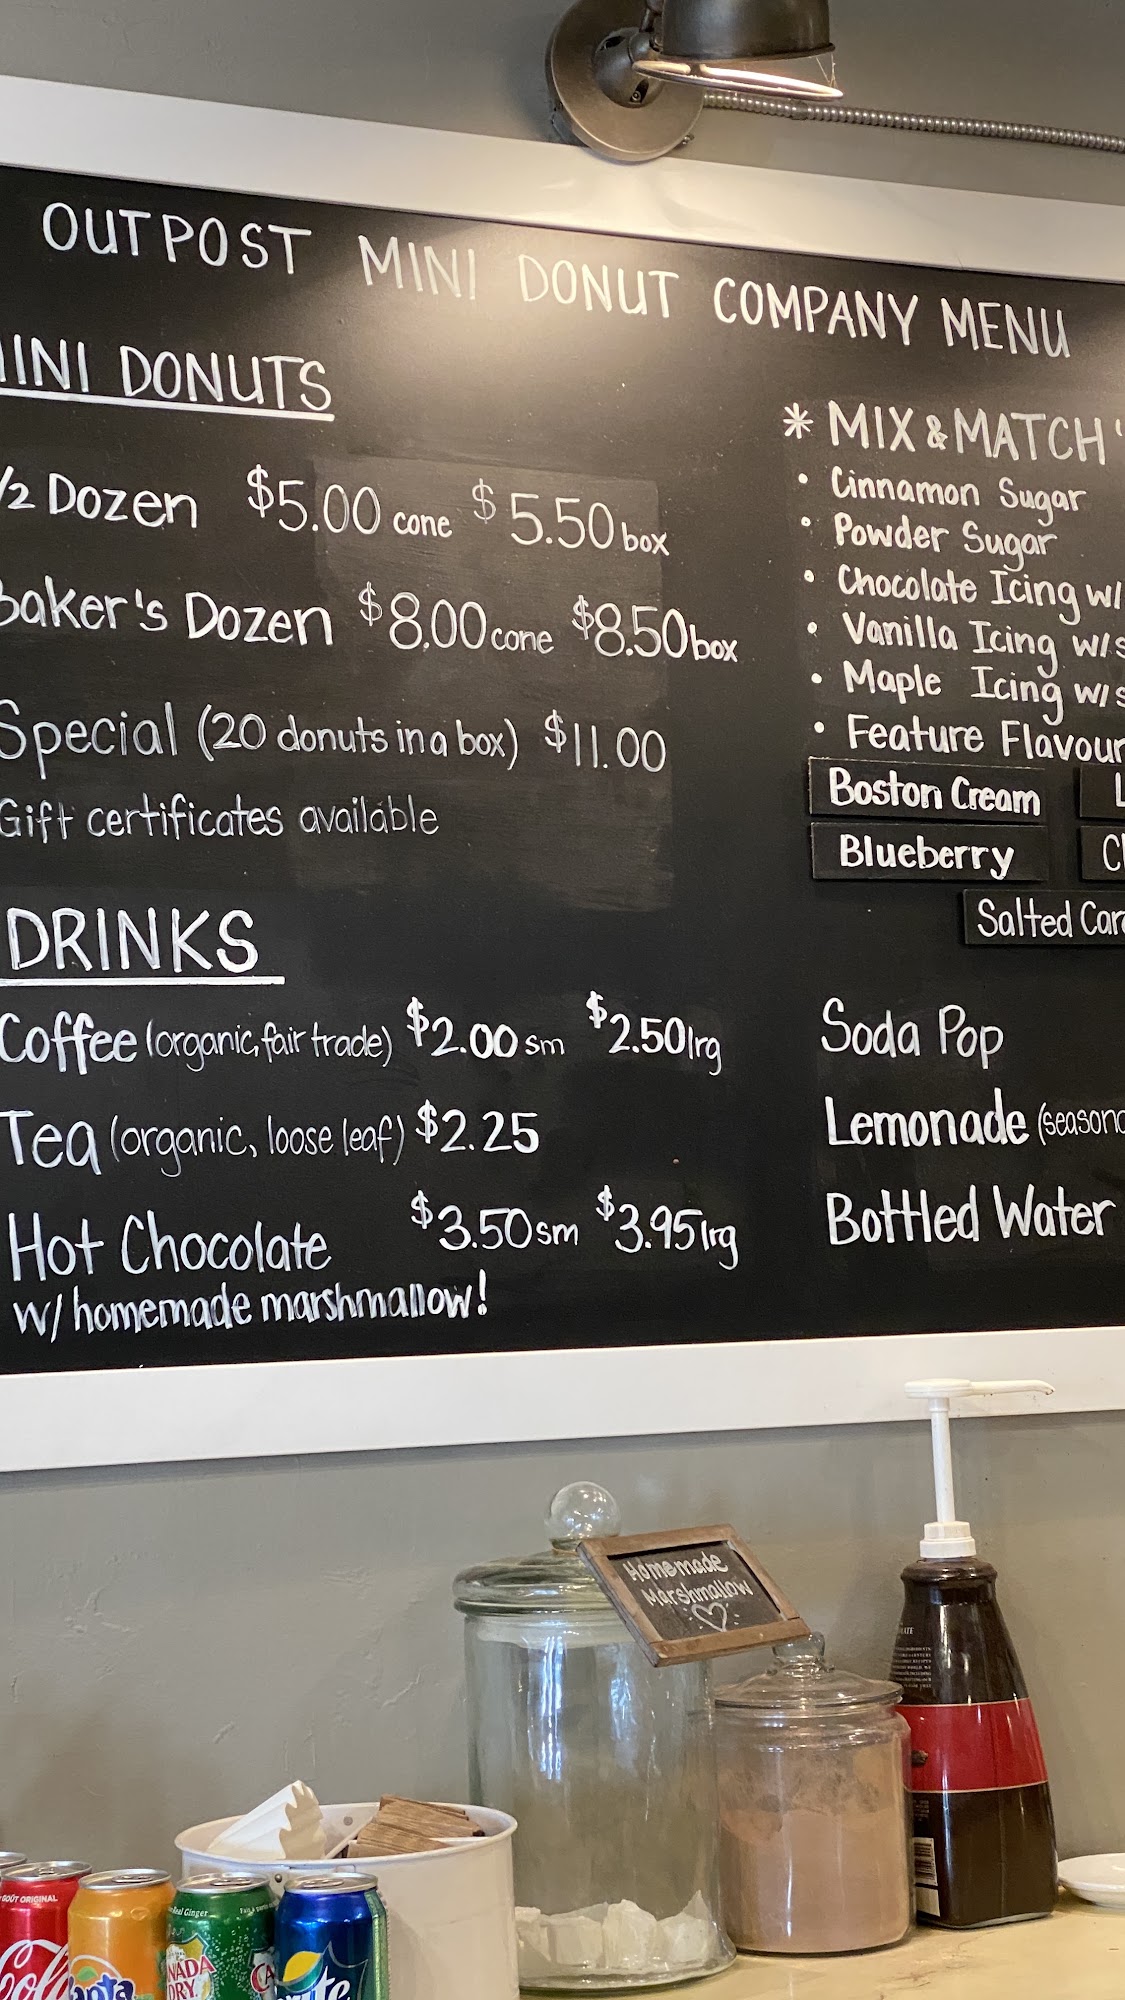 OUTPOST MINI DONUT COMPANY MENU
MINI DONUTS
1/2 Dozen $5.00 cone $5.50 box
Baker's Dozen $8.00 cone $8.50 box
Special (20 donuts in a box) $11.00
Gift certificates available
* MIX & MATCH
• Cinnamon Sugar
• Powder Sugar
• Chocolate Icing w/
• Vanilla Icing w/s
• Maple Icing w/s
• Feature Flavour
Boston Cream
Blueberry
Salted Car
DRINKS
Coffee (organic, fair trade) $2.00 sm $2.50 lrg
Tea (organic, loose leaf) $2.25
Hot Chocolate $3.50 sm $3.95 lrg
w/ homemade marshmallow!
Soda Pop
Lemonade (seasona
Bottled Water
Homemade
Marshmallow
GOÛT ORIGINAL
Real Ginger
NADA
DRY